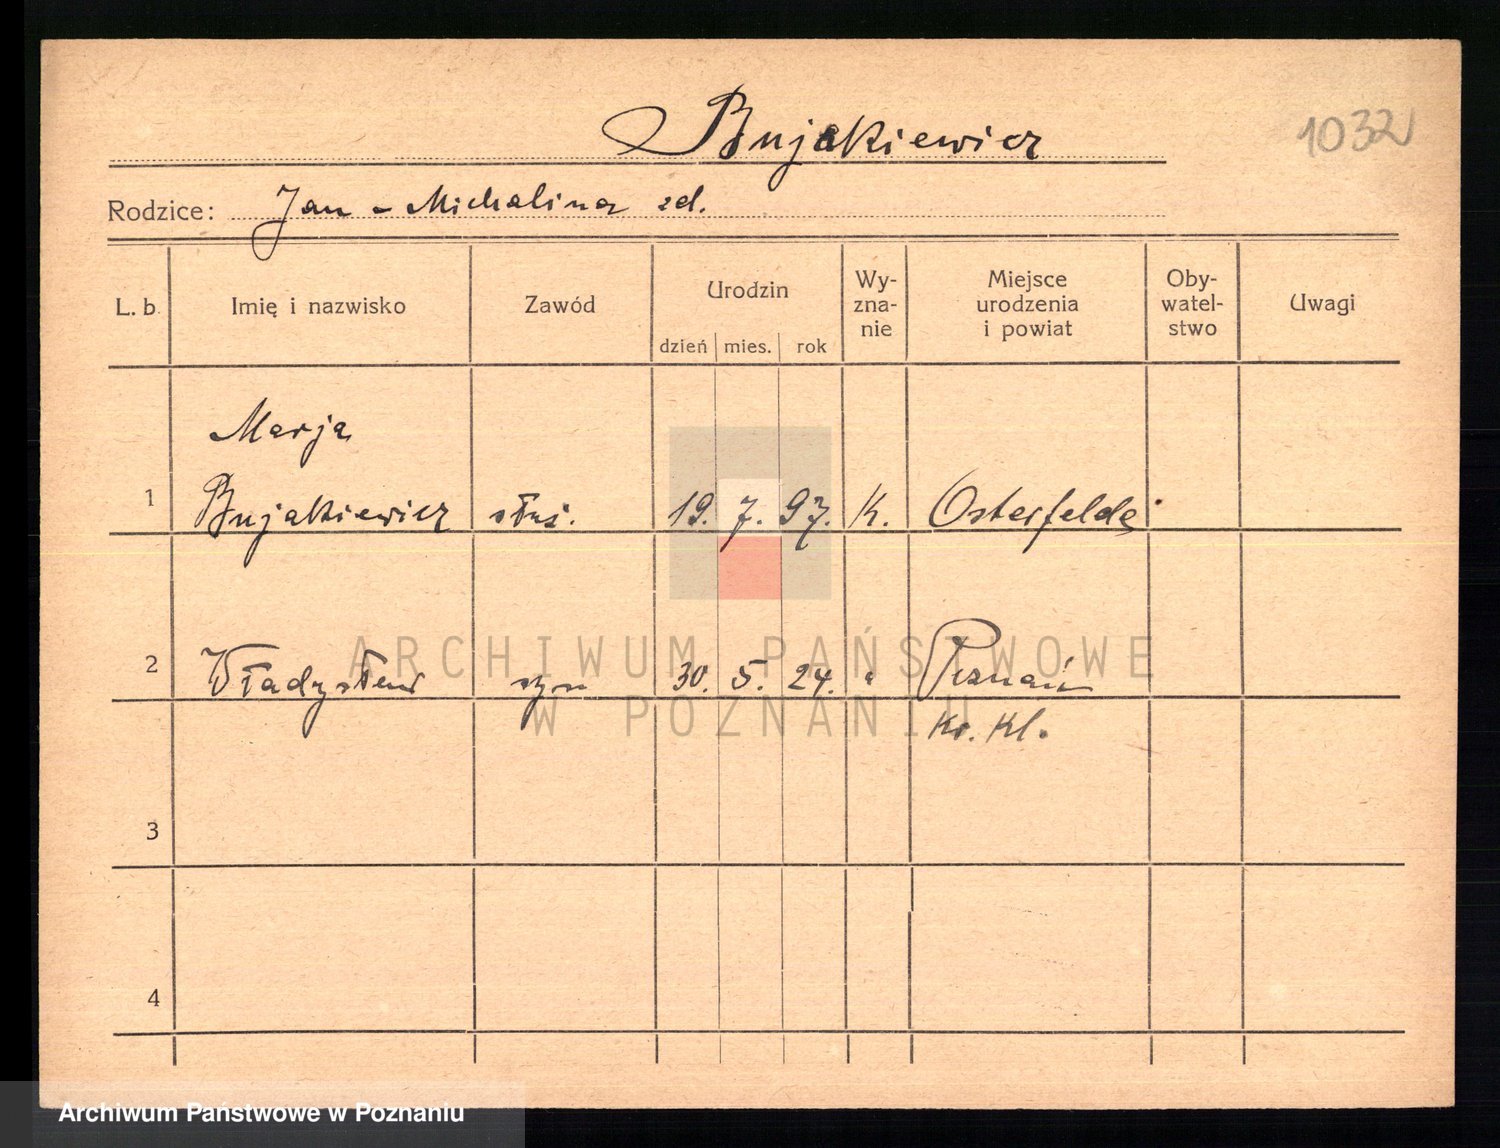 Bujakiewicz
1032
Rodzice: Jan - Michalina zd.
L. b.
Imię i nazwisko
Zawód
Urodzin
dzień mies. rok
Wy-
zna-
nie
Miejsce
urodzenia
i powiat
Oby-
watel-
stwo
Uwagi
Marja
1 Bujakiewicz służ. 19. 7. 97. K. Osterfelde
2 Władysław syn 30. 5. 24. " Poznań
Kr. Kl.
3
4
ARCHIWUM PAŃSTWOWE
W POZNANIU
Archiwum Państwowe w Poznaniu